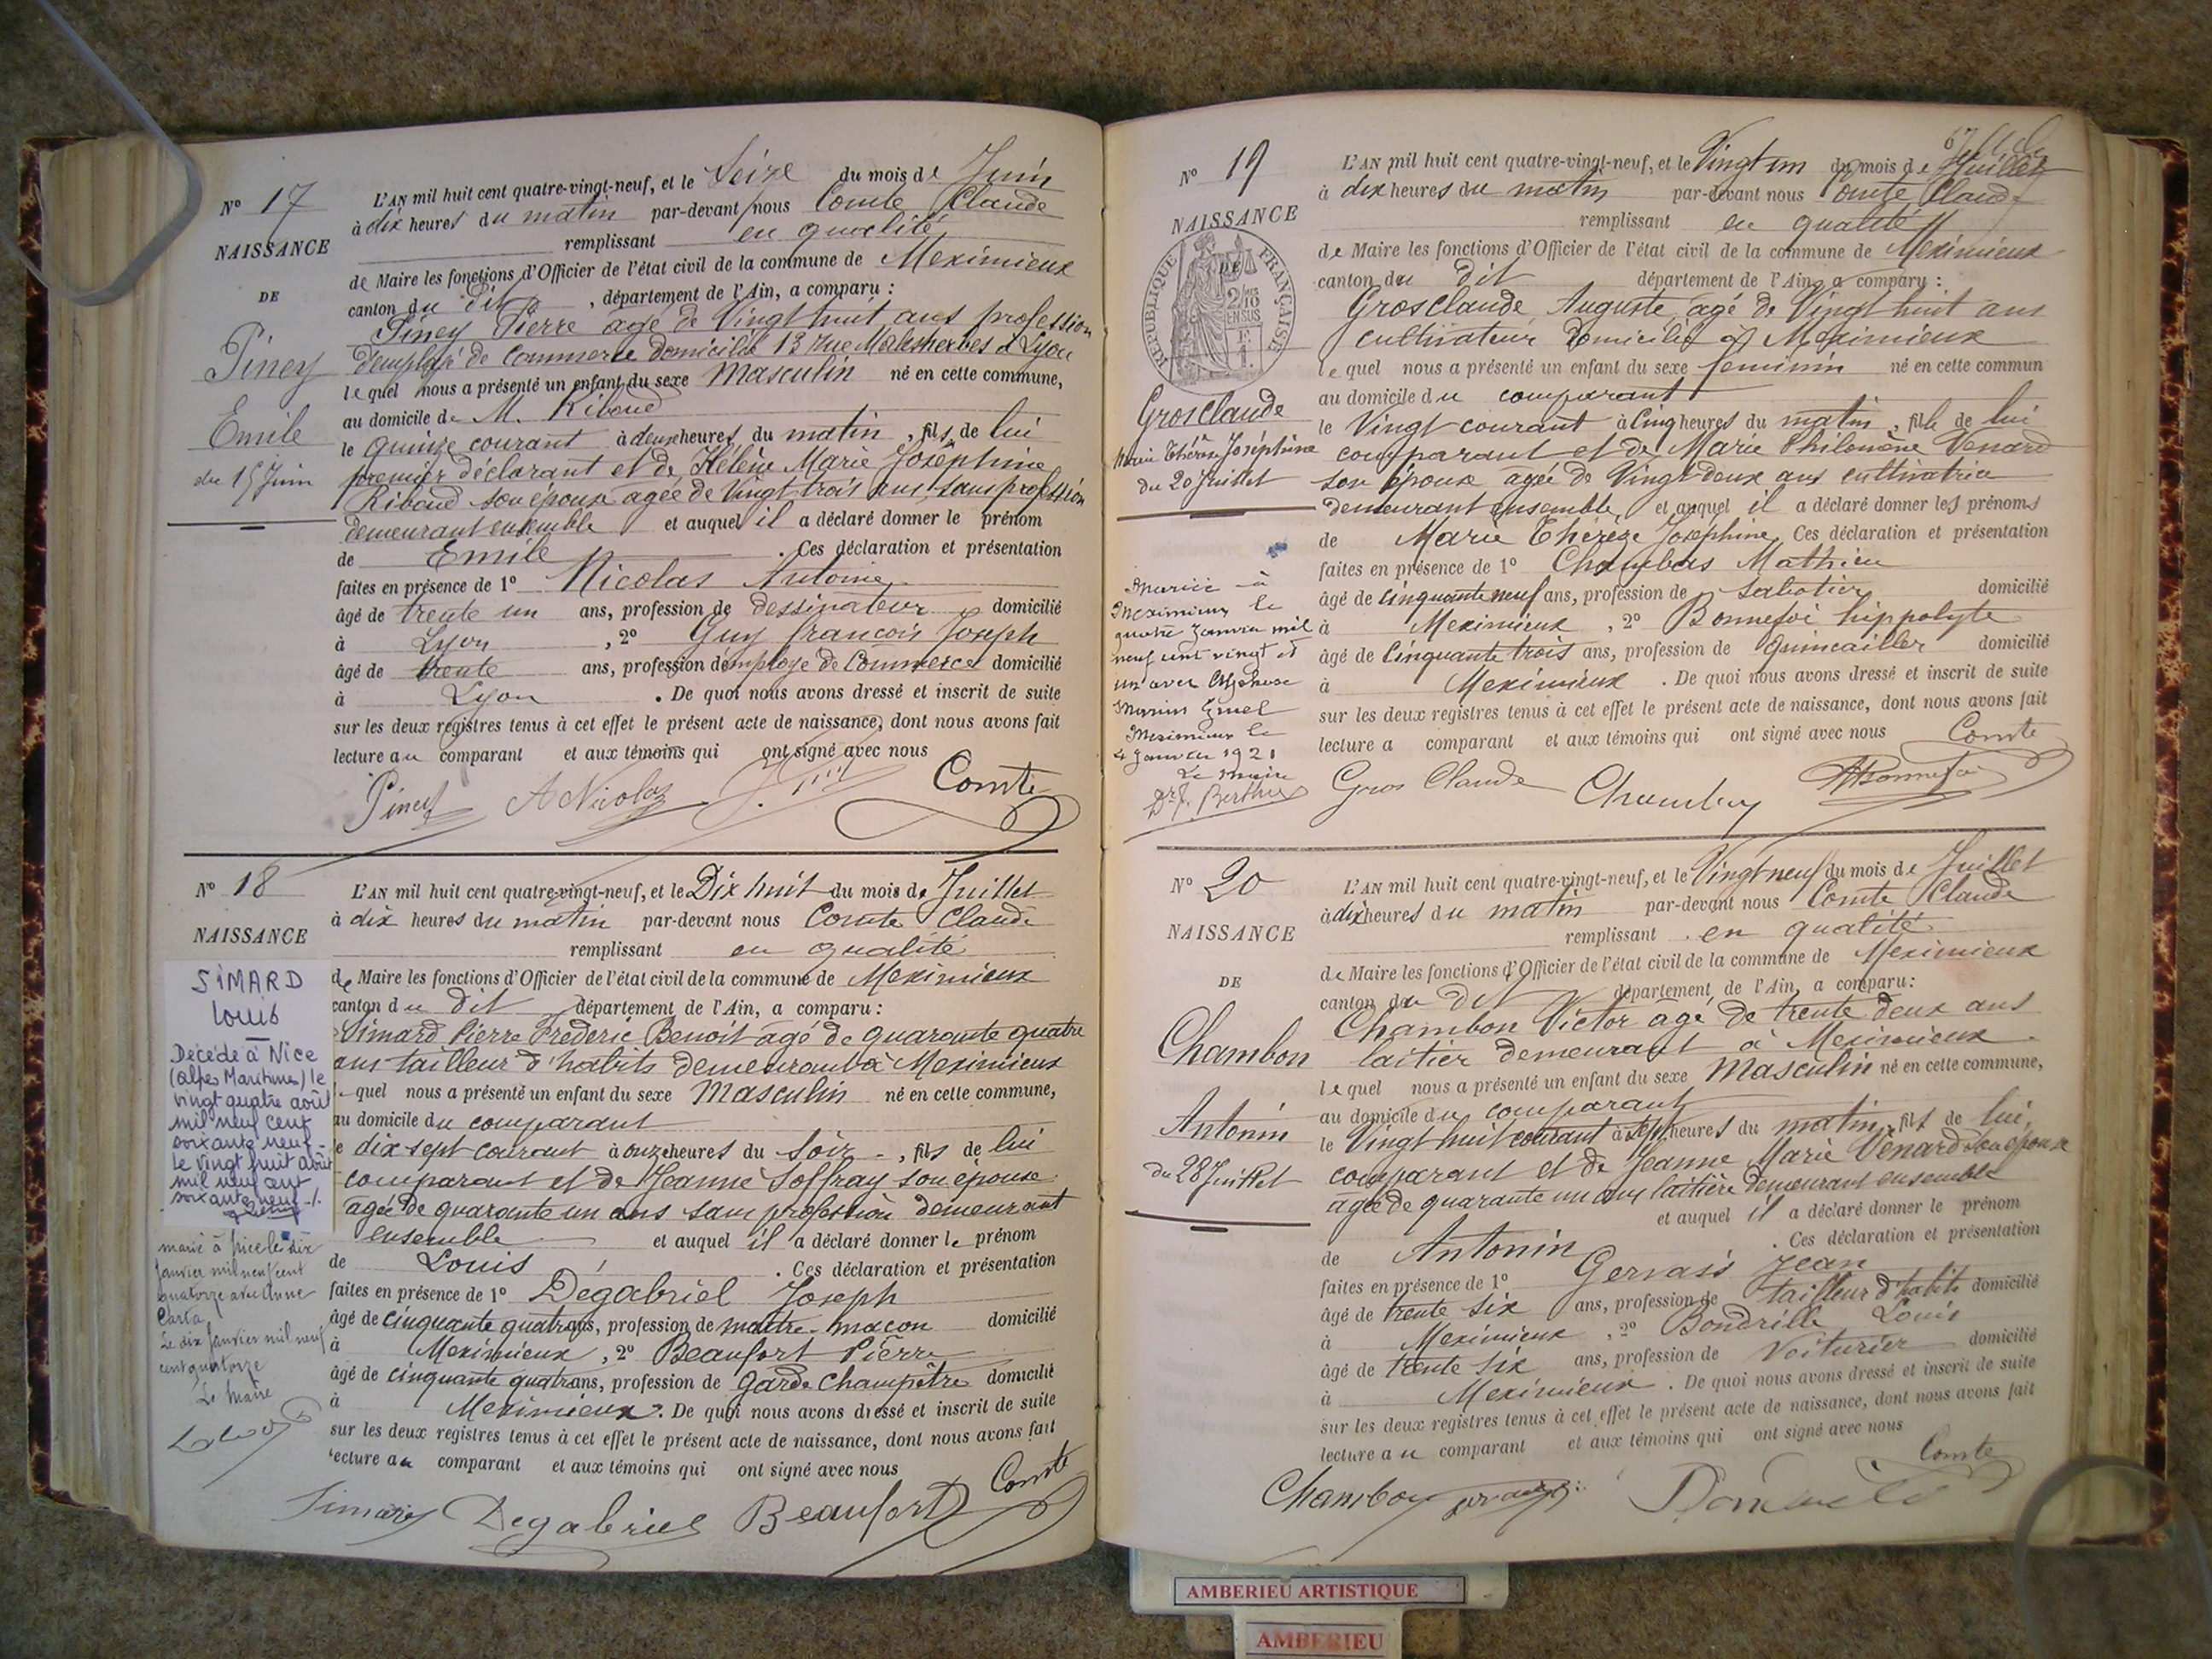 N° 17
NAISSANCE
DE
Piney
Emile
du 15 Juin
L'AN mil huit cent quatre-vingt-neuf, et le Seize du mois de Juin
à dix heures du matin par-devant nous Comte Claude
remplissant en qualité
de Maire les fonctions d'Officier de l'état civil de la commune de Meximieux
canton du dit, département de l'Ain, a comparu :
Piney Pierre agé de Vingt huit ans profession
d'employé de Commerce domicilié 13 rue Malesherbes à Lyon
lequel nous a présenté un enfant du sexe Masculin né en cette commune,
au domicile de M. Riboud
le quinze courant à deux heures du matin, fils de lui
premier déclarant et de Hélène Marie Joséphine
Riboud son épouse agée de Vingt trois ans sans profession
demeurant ensemble et auquel il a déclaré donner le prénom
de Emile. Ces déclaration et présentation
faites en présence de 1° Nicolas Antoine
âgé de trente un ans, profession de dessinateur domicilié
à Lyon, 2° Guy françois Joseph
âgé de trente ans, profession d'employe de Commerce domicilié
à Lyon. De quoi nous avons dressé et inscrit de suite
sur les deux registres tenus à cet effet le présent acte de naissance, dont nous avons fait
lecture au comparant et aux témoins qui ont signé avec nous
Piney A Nicolas Comte
N° 18
NAISSANCE
SIMARD
Louis
Décédé à Nice
(Alpes Maritimes) le
vingt quatre août
mil neuf cent
soixante neuf -
le vingt huit août
mil neuf cent
soixante neuf ./.
marié à Nice le dix
janvier mil neuf cent
quatorze avec Anne
Carta
Le dix janvier mil neuf
cent quatorze
Le Maire
L'AN mil huit cent quatre-vingt-neuf, et le Dix huit du mois de Juillet
à dix heures du matin par-devant nous Comte Claude
remplissant en qualité
de Maire les fonctions d'Officier de l'état civil de la commune de Meximieux
canton du dit département de l'Ain, a comparu :
Simard Pierre Frédéric Benoit agé de quarante quatre
ans tailleur d'habits demeurant à Meximieux
lequel nous a présenté un enfant du sexe Masculin né en cette commune,
au domicile du comparant
le dix sept courant à onze heures du Soir, fils de lui
comparant et de Jeanne Soffray son épouse
agée de quarante un ans sans profession demeurant
ensemble et auquel il a déclaré donner le prénom
de Louis. Ces déclaration et présentation
faites en présence de 1° Degabriel Joseph
âgé de cinquante quatre ans, profession de maître-maçon domicilié
à Meximieux, 2° Beaufort Pierre
âgé de cinquante quatre ans, profession de garde Champêtre domicilié
à Meximieux. De quoi nous avons dressé et inscrit de suite
sur les deux registres tenus à cet effet le présent acte de naissance, dont nous avons fait
lecture au comparant et aux témoins qui ont signé avec nous
Simard Degabriel Beaufort Comte
N° 19
NAISSANCE
DE
RÉPUBLIQUE FRANÇAISE
2/10 EN SUS
Grosclaude
Marie Thérèse Joséphine
du 20 Juillet
Mariée à
Meximieux le
quatre Janvier mil
neuf cent vingt et
un avec Alphonse
Marius
Meximieux le
4 Janvier 1921
Le maire
Dr J. Berthier
L'AN mil huit cent quatre-vingt-neuf, et le Vingt un du mois de Juillet
à dix heures du matin par-devant nous Comte Claude
remplissant en qualité
de Maire les fonctions d'Officier de l'état civil de la commune de Meximieux
canton du dit département de l'Ain, a comparu :
Grosclaude Auguste agé de Vingt huit ans
cultivateur domicilié à Meximieux
lequel nous a présenté un enfant du sexe feminin né en cette commun
au domicile du comparant
le Vingt courant à Cinq heures du matin, fille de lui
comparant et de Marie Philomène Venard
son épouse agée de Vingt-deux ans cultivatrice
demeurant ensemble et auquel il a déclaré donner les prénoms
de Marie Thérèze Joséphine. Ces déclaration et présentation
faites en présence de 1° Mathieu
âgé de Cinquante neuf ans, profession de Sabotier domicilié
à Meximieux, 2° Bonnefoi hippolyte
âgé de Cinquante trois ans, profession de Quincailler domicilié
à Meximieux. De quoi nous avons dressé et inscrit de suite
sur les deux registres tenus à cet effet le présent acte de naissance, dont nous avons fait
lecture a comparant et aux témoins qui ont signé avec nous Comte
Gros Claude Bonnefoi
N° 20
NAISSANCE
DE
Chambon
Antonin
du 28 Juillet
L'AN mil huit cent quatre-vingt-neuf, et le Vingt neuf du mois de Juillet
à dix heures du matin par-devant nous Comte Claude
remplissant en qualité
de Maire les fonctions d'Officier de l'état civil de la commune de Meximieux
canton du dit département de l'Ain, a comparu :
Chambon Victor agé de trente deux ans
laitier demeurant à Meximieux
lequel nous a présenté un enfant du sexe Masculin né en cette commune,
au domicile du comparant
le Vingt huit courant à sept heures du matin, fils de lui
comparant et de Jeanne Marie Venard son épouse
agée de quarante un ans laitière demeurant ensemble
et auquel il a déclaré donner le prénom
de Antonin. Ces déclaration et présentation
faites en présence de 1° Gervais Jean
âgé de trente six ans, profession de tailleur d'habits domicilié
à Meximieux, 2° Bondrille Louis
âgé de trente six ans, profession de Voiturier domicilié
à Meximieux. De quoi nous avons dressé et inscrit de suite
sur les deux registres tenus à cet effet le présent acte de naissance, dont nous avons fait
lecture au comparant et aux témoins qui ont signé avec nous
Chambon Comte
AMBERIEU ARTISTIQUE
AMBERIEU